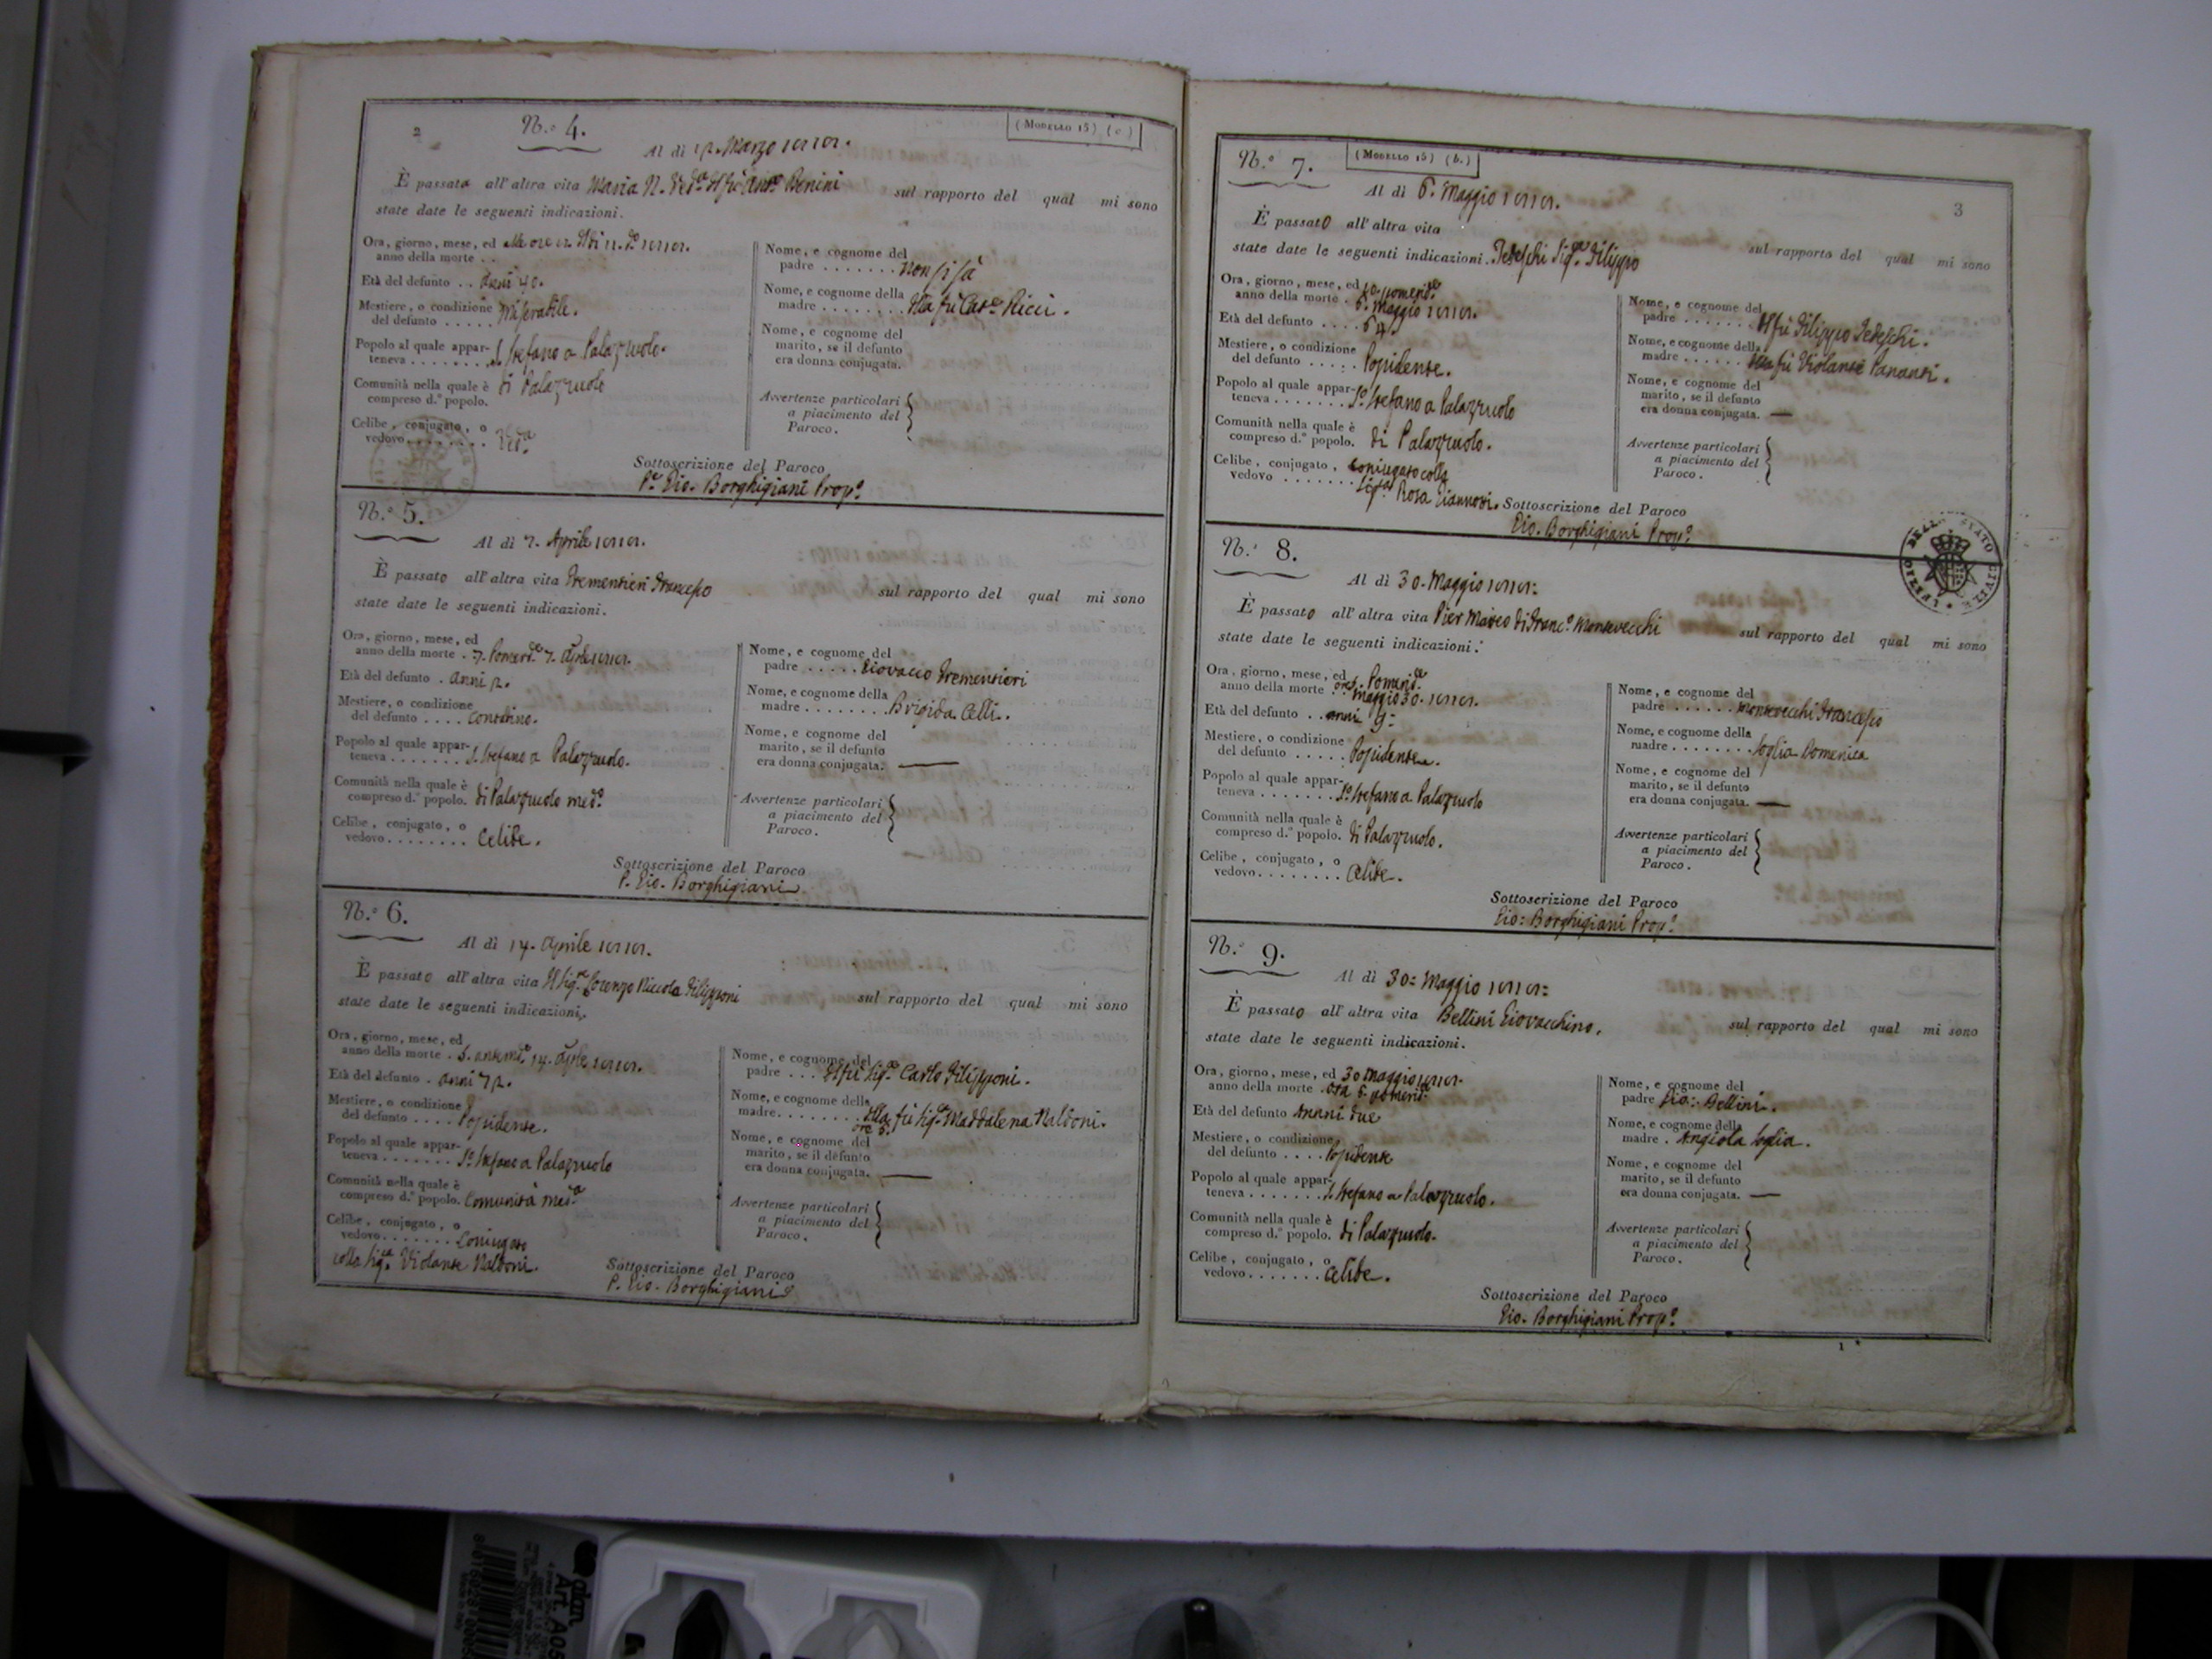 2
N.º 4.
(Modello 15) (c)
Al dì 12. Marzo 1818.
È passata all'altra vita Maria N. Ved.ª del fù Ant.º Benini sul rapporto del qual mi sono
state date le seguenti indicazioni.
Ora, giorno, mese, ed
anno della morte . .
Età del defunto . . Anni 40.
Mestiere, o condizione
del defunto . . . . . Miserabile.
Popolo al quale appar-
teneva . . . . . . . S. Stefano a Palazzuolo.
Comunità nella quale è
compreso d.º popolo. di Palazzuolo
Celibe, conjugato, o
vedovo . . . . . . . . Ved.ª
Nome, e cognome del
padre . . . . . . . non si sà
Nome, e cognome della
madre . . . . . . . . Ricci.
Nome, e cognome del
marito, se il defunto
era donna conjugata.
Avvertenze particolari
a piacimento del
Paroco.
Sottoscrizione del Paroco
P.e Gio. Borghigiani Prop.º
N.º 5.
Al dì 7. Aprile 1818.
È passato all'altra vita Trementieri Francesco sul rapporto del qual mi sono
state date le seguenti indicazioni.
Ora, giorno, mese, ed
anno della morte . 7. Pomerid.e 7. Aprile 1818.
Età del defunto . Anni 2.
Mestiere, o condizione
del defunto . . . . Contadino.
Popolo al quale appar-
teneva . . . . . . . S. Stefano a Palazzuolo.
Comunità nella quale è
compreso d.º popolo. di Palazzuolo med.º
Celibe, conjugato, o
vedovo . . . . . . . . Celibe.
Nome, e cognome del
padre . . . . . Giovacco Trementieri
Nome, e cognome della
madre . . . . . . . . Brigida Celli.
Nome, e cognome del
marito, se il defunto
era donna conjugata. —
Avvertenze particolari
a piacimento del
Paroco.
Sottoscrizione del Paroco
P. Gio. Borghigiani
N.º 6.
Al dì 14. Aprile 1818.
È passato all'altra vita Il Sig.re Lorenzo Niccola Filipponi sul rapporto del qual mi sono
state date le seguenti indicazioni.
Ora, giorno, mese, ed
anno della morte . 5. antemd.e 14. Aprile 1818.
Età del defunto . Anni 72.
Mestiere, o condizione
del defunto . . . . Possidente.
Popolo al quale appar-
teneva . . . . . . . S.º Stefano a Palazzuolo
Comunità nella quale è
compreso d.º popolo. Comunità med.ª
Celibe, conjugato, o
vedovo . . . . . . . Coniugato
colla Sig.ra Violante Naldoni.
Nome, e cognome del
padre . . . del fù Sig.re Carlo Filipponi.
Nome, e cognome della
madre . . . . . . . . della fù Sig.ra Maddalena Naldoni.
Nome, e cognome del
marito, se il defunto
era donna conjugata. —
Avvertenze particolari
a piacimento del
Paroco.
Sottoscrizione del Paroco
P. Gio. Borghigiani
3
N.º 7.
(Modello 15) (b.)
Al dì 6. Maggio 1818.
È passato all'altra vita sul rapporto del qual mi sono
state date le seguenti indicazioni. Tedeschi Sig.re Filippo
Ora, giorno, mese, ed 10. pomerid.e
anno della morte . 6. Maggio 1818.
Età del defunto . . . . 64.
Mestiere, o condizione
del defunto . . . . . Possidente.
Popolo al quale appar-
teneva . . . . . . . S.º Stefano a Palazzuolo
Comunità nella quale è
compreso d.º popolo. di Palazzuolo.
Celibe, conjugato, coniugato colla
vedovo . . . . . . . Sig.ra Rosa Giannoni.
Nome, e cognome del
padre . . . . . . . del fù Filippo Tedeschi.
Nome, e cognome della
madre . . . . . . della fù Violante Pananti.
Nome, e cognome del
marito, se il defunto
era donna conjugata. —
Avvertenze particolari
a piacimento del
Paroco.
Sottoscrizione del Paroco
Gio. Borghigiani Prop.º
N.º 8.
Al dì 30. Maggio 1818:
È passato all'altra vita Pier Mateo di Franc.º Montevecchi sul rapporto del qual mi sono
state date le seguenti indicazioni.
Ora, giorno, mese, ed
anno della morte . Pomerid.e
Maggio 30. 1818.
Età del defunto . . anni 9:
Mestiere, o condizione
del defunto . . . . . Possidente.
Popolo al quale appar-
teneva . . . . . . . S.º Stefano a Palazzuolo
Comunità nella quale è
compreso d.º popolo. di Palazzuolo.
Celibe, conjugato, o
vedovo . . . . . . . . Celibe.
Nome, e cognome del
padre . . . . . . Montevecchi Francesco
Nome, e cognome della
madre . . . . . . . . Soglia Domenica
Nome, e cognome del
marito, se il defunto
era donna conjugata. —
Avvertenze particolari
a piacimento del
Paroco.
Sottoscrizione del Paroco
Gio: Borghigiani Prop.º
N.º 9.
Al dì 30: Maggio 1818:
È passato all'altra vita Bellini Giovacchino. sul rapporto del qual mi sono
state date le seguenti indicazioni.
Ora, giorno, mese, ed 30 Maggio 1818.
anno della morte . ora 6. pomerid.e
Età del defunto Anni due
Mestiere, o condizione
del defunto . . . . Possidente
Popolo al quale appar-
teneva . . . . . . . S. Stefano a Palazzuolo.
Comunità nella quale è
compreso d.º popolo. di Palazzuolo.
Celibe, conjugato, o
vedovo . . . . . . . Celibe.
Nome, e cognome del
padre Gio: Bellini.
Nome, e cognome della
madre . Angiola Soglia.
Nome, e cognome del
marito, se il defunto
era donna conjugata. —
Avvertenze particolari
a piacimento del
Paroco.
Sottoscrizione del Paroco
Gio. Borghigiani Prop.º
1 *
Art. A05